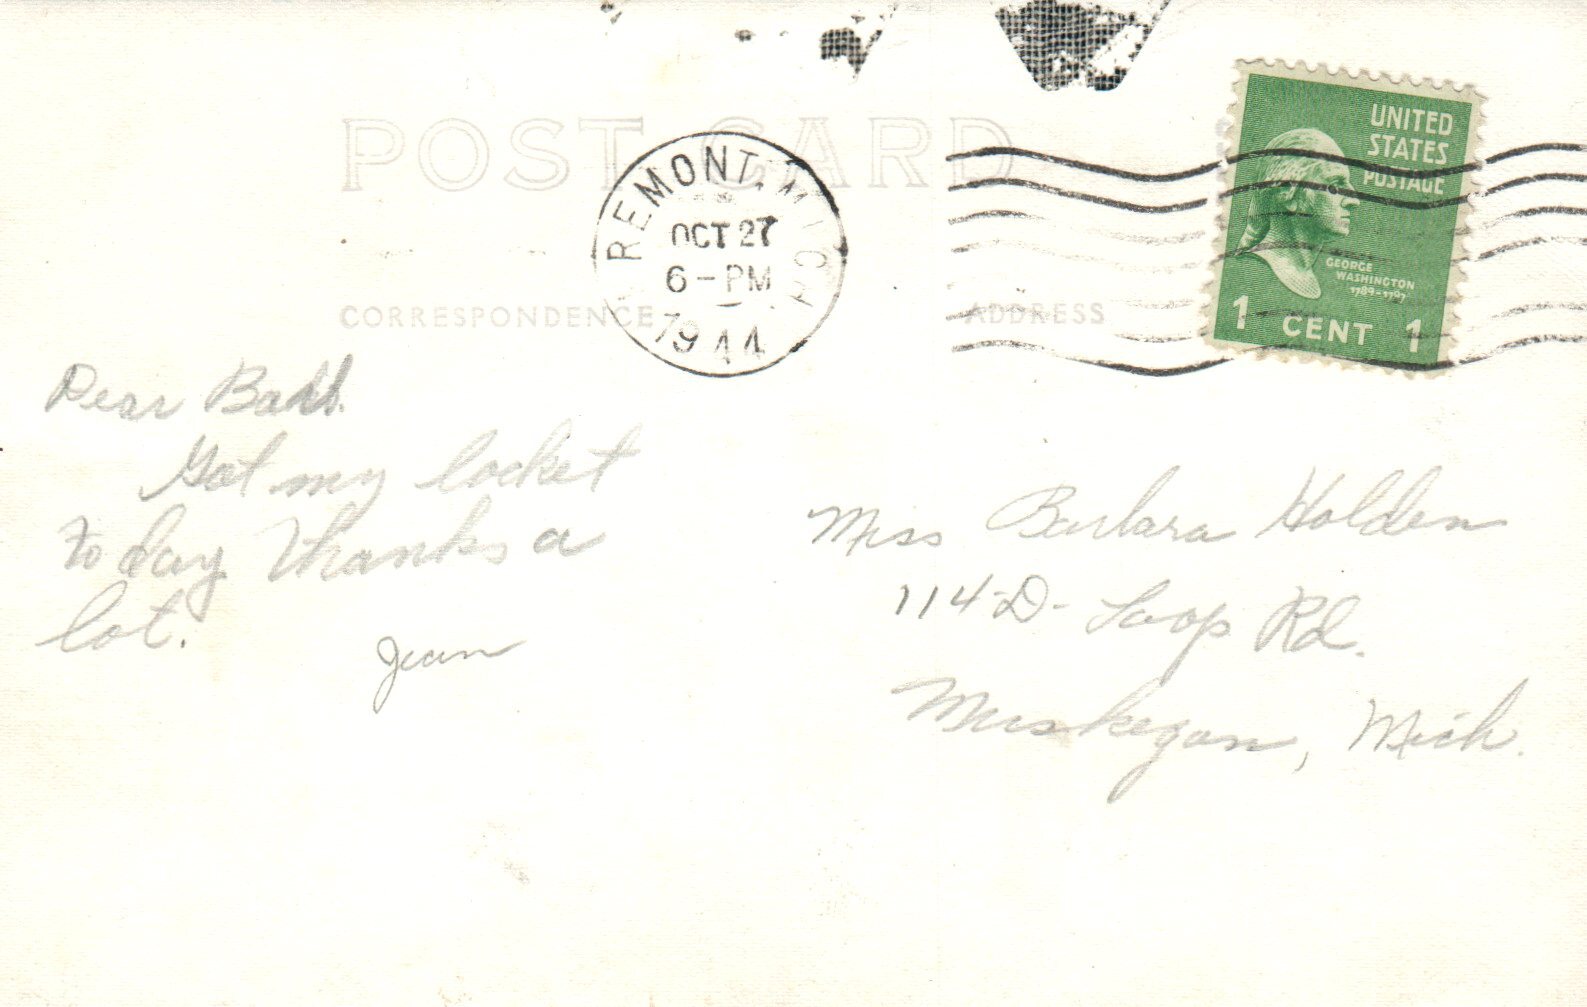 POST CARD
REMONT, MICH
OCT 27
6-PM
1944
UNITED
STATES
POSTAGE
GEORGE
WASHINGTON
1789-1797
1 CENT 1
CORRESPONDENCE
ADDRESS
Dear
Got my locket
to day thanks a
lot.
Jean
Miss Barbara Holden
114-D- Loop Rd.
Muskegon, Mich.